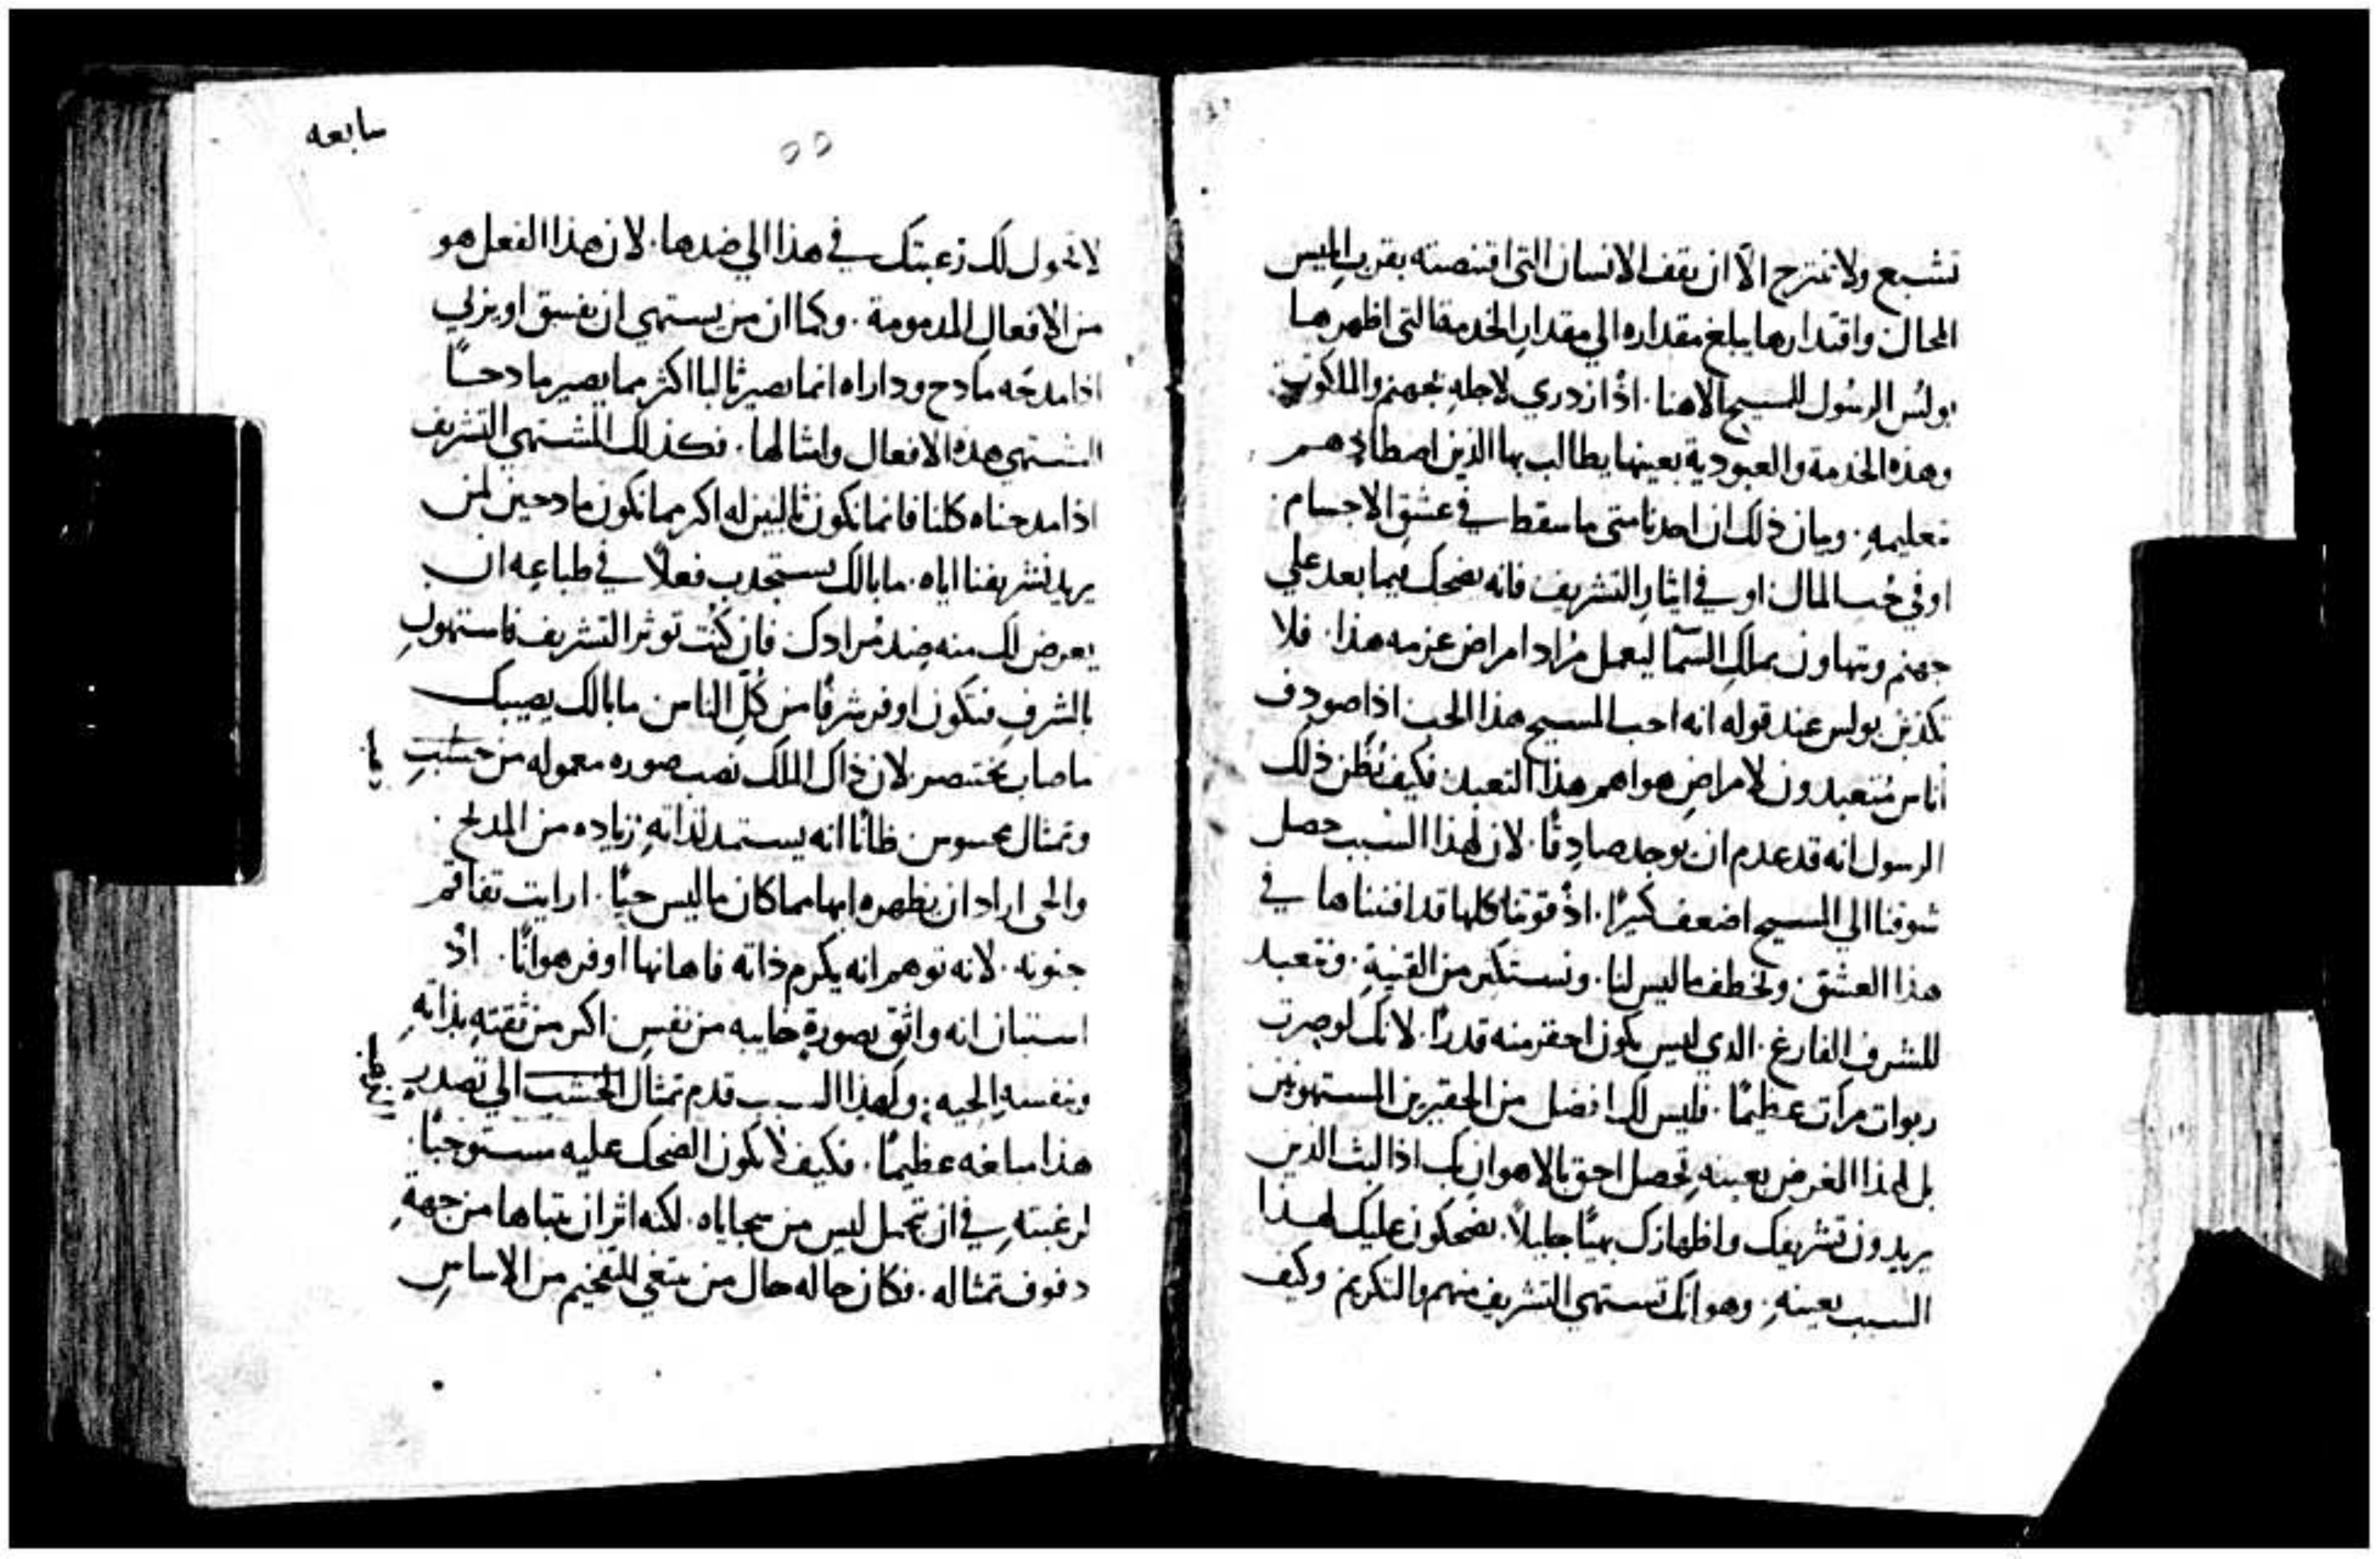 تشبع ولا تمتزج الّا ان يقف الانسان التى اقتنصته بقرب ابليس
المحال واقتدارها يبلغ مقداره الي مقدار الخدمة التى اظهرها
بولسُ الرسُول للمسيح الاهنا. اذْ ازدري لاجلهِ بجهنم والملكوت.
وهذه الخدمة والعبودية بعينها يطالب بها الذين اصطادهم
تعليمهِ. وبيان ذلك ان احدنا متى ما سقط في عشقِ الاجسام
او في حُب المال او في ايثار التشريف فانه يضحك فيما بعد علي
جهنم ويتهاون بملكِ السمآ ليعمل مُراد امراض عزمه هذا. فلا
تكذبن بولس عند قوله انه احب المسيح هذا الحب اذا صودف
أناس مُتعبدون لامراضِ هواهم هذا التعبد. فكيف تُظن ذلك
الرسول انه قد عدم ان يوجد صادِقًا. لان لهذا السبب حصل
شوقنا الي المسيح اضعف كثيرًا. اذْ قوتنا كلها قد افنيناها في
هذا العشق. ونخطف ما ليس لنا. ونستكثر من القنيةِ. ونتعبد
للشرف الفارغ. الدي ليس يكون احقر منه قدرًا. لانك لو صرت
ربوات مرات عظيمًا. فليس لك افضل من الحقيرين المستهونين
بل لهذا الغرض بعينهِ تحصل احق بالاهوان بك اذا لبث الذين
يريدون تشريفك واظهارك بهيًا جليلاً. يضحكون عليك لهذا
السبب بعينهِ. وهو انك تستهي التشريف منهم والتكريم وكيف
سابعه
٥٥
لا تحول لك رغبتك في هذا الي ضدها. لان هذا الفعل هو
من الافعال المدمومة. وكما ان من يستهي ان يفسق او يزني
اذا مدحَه مادح وداراه انما يصير ثالبا اكثر مما يصير مادحًا
المشتهي هذه الافعال وامثالها. فكذلك المشتهي التشريف
اذا مدحناه كلنا فانما نكون ثالبين له اكثر مما نكون مادحين لمن
يريد تشريفنا اياه. ما بالك تستجدب فعلاً في طباعِه ان
يعرض لك منه ضد مُرادك فان كنُت توثر التشريف فاستهولِ
بالشرفِ فتكون اوفر شرفًا من كُلِّ الناس ما بالك يصيبك
ما صاب بختنصر. لان ذاك الملك نصب صوره معموله من خشبٍ
وتمثال محسوس ظانًا انه يستمد لذاتهِ زياده من المدلح.
والحى اراد ان يظهره ابها مما كان ما ليس حيًا. ارايت تفاقم
جنونه. لانه توهم انه يكرم ذاته فاهانها اوفر هوانًا. اذْ
استبان انه واثق بصورةٍ خايبه من نفسٍ اكثر من ثقتهِ بذاتهِ
وبنفسهِ الحيه. ولهذا السبب قدم تمثال الخشب الي تصدرٍ
هذا مبلغه عظيمًا. فكيف لا يكون الضحك عليه مستوجبًا.
لرغبتهِ في ان تجمل ليس من سجاياه. لكنه اثر ان يتباها من جهةِ
دفوف تمثاله. فكان حاله حال من يبتغي التفخيم من الاساسِ